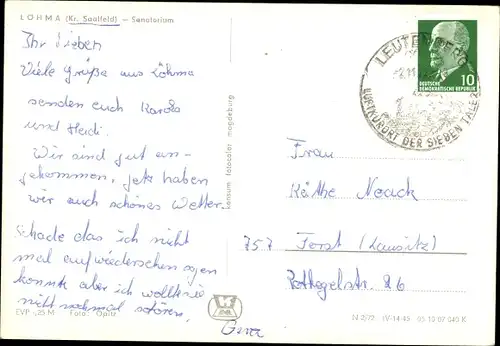 LOHMA (Kr. Saalfeld) – Sanatorium
Ihr Lieben
Viele Grüße aus Löhma
senden euch Karola
und Heidi.
Wir sind gut an-
gekommen, jetz haben
wir auch schönes Wetter.
Schade das ich nicht
mal aufwiedersehen sagen
konnte aber ich wollte sie
nicht nochmal stören.
EVP -,25 M Foto: Opitz
konsum fotocolor magdeburg
LEUTENBERG
LUFTKURORT DER SIEBEN TÄLER
10
DEUTSCHE
DEMOKRATISCHE REPUBLIK
Frau
Käthe Noack
757 Forst (Lausitz)
Rotkegelstr. 26
IV-14-45 05 10 07 040 K